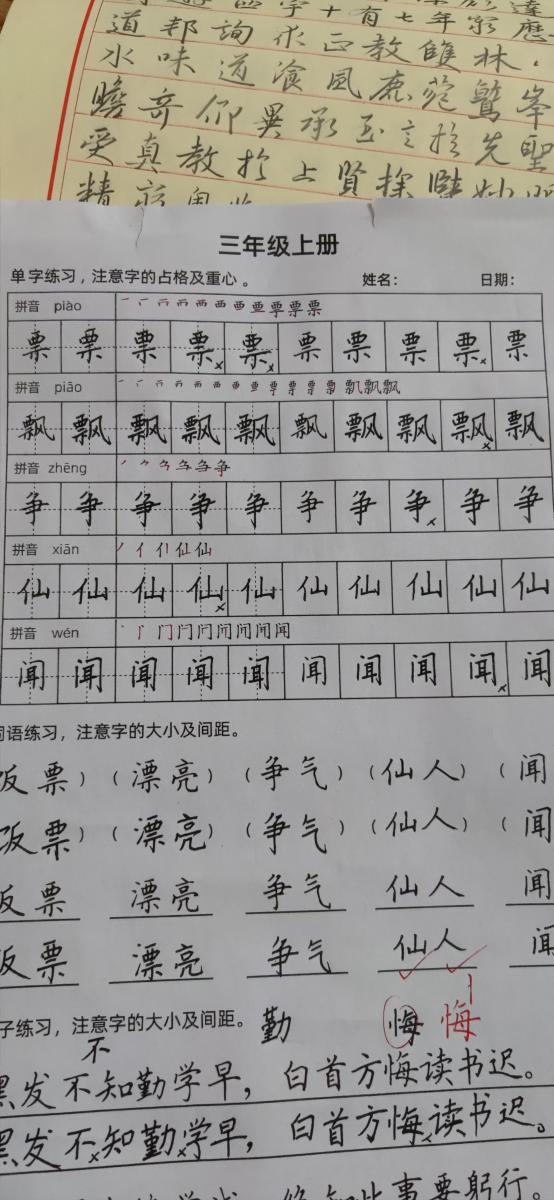 十有七年穷
道邦詢求正教雙林．
水味道滄風鹿菀鷲峯
瞻奇仰異承至言於先聖
受真教於上賢探賾妙
精窮奧
三年级上册
单字练习，注意字的占格及重心。 姓名： 日期：
拼音 piào
票 票 票 票 票 票 票 票 票 票
拼音 piāo
飘 飘 飘 飘 飘 飘 飘 飘 飘 飘
拼音 zhēng
争 争 争 争 争 争 争 争 争 争
拼音 xiān
仙 仙 仙 仙 仙 仙 仙 仙 仙 仙
拼音 wén
闻 闻 闻 闻 闻 闻 闻 闻 闻 闻
词语练习，注意字的大小及间距。
票）（漂亮）（争气）（仙人）（闻
票）（漂亮）（争气）（仙人）（闻
票 漂亮 争气 仙人 闻
票 漂亮 争气 仙人 闻
子练习，注意字的大小及间距。 勤 悔 悔
不
黑发不知勤学早，白首方悔读书迟。
黑发不知勤学早，白首方悔读书迟。
此事要躬行。